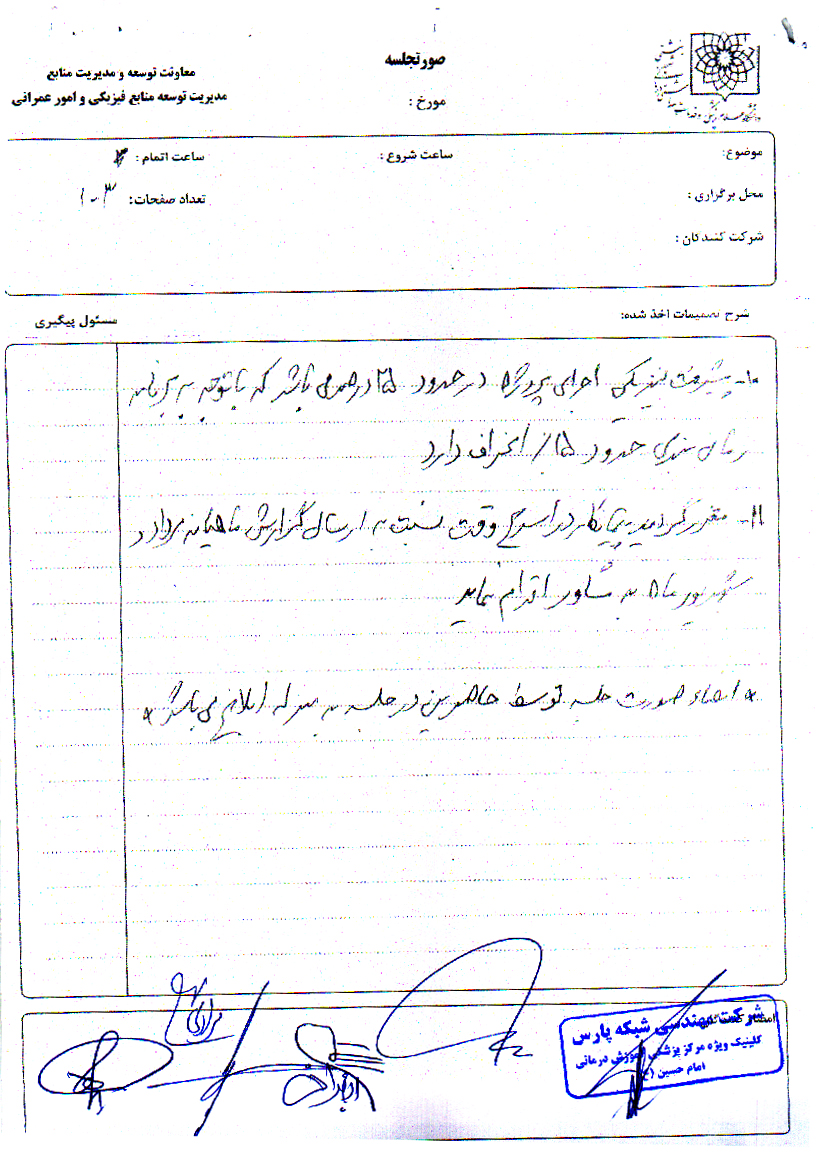 صورتجلسه
معاونت توسعه و مدیریت منابع
مدیریت توسعه منابع فیزیکی و امور عمرانی
مورخ :
موضوع:
ساعت شروع :
ساعت اتمام :
محل برگزاری :
تعداد صفحات:
شرکت کنندگان :
شرح تصمیمات اخذ شده:
مسئول پیگیری
۱۰- پیشرفت فیزیکی اجرای پروژه در حدود ۲۵ درصد می باشد که با توجه به برنامه
زمان بندی حدود ۱۵٪ انحراف دارد
۱۱- مقرر گردید پیمانکار در اسرع وقت نسبت به ارسال گزارش ماهیانه مرداد و
شهریور ماه به مشاور اقدام نماید
* امضاء صورت جلسه توسط حاضرین در جلسه به منزله ابلاغ می باشد *
شرکت مهندسی شبکه پارس
کلینیک ویژه مرکز پزشکی آموزش درمانی
امام حسین (ع)